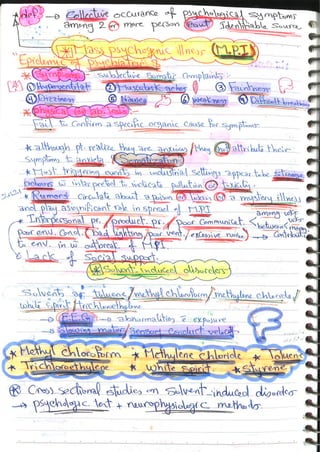 def → Collective occurance of psychological symptoms
among 2 or more person without Identifiable Source
* Mass psychogenic illness (MPI)
Epidemic of psychiatric
* Symptoms: subjective Somatic Complaints:
① Hyperventilat ② Muscular aches ③ Faintness
④ Dizziness ⑤ Nausea ⑥ weakness ⑦ Difficult breathing
* Physical or lab tests
Fail to Confirm a specific organic cause for symptoms
* although pt. realize they are anxious / they not attribute their
Symptoms to anxiety (Somatization)
* Most triggering events in industrial settings appear to be
odours interpreted to indicate pollution or toxicity.
* Rumors circulate about a poison or toxin or a mystery illness
and play a significant role in spread of MPI
* Interpersonal pr. / product pr. / poor Communicat
poor env. Cond. / bad lighting / poor vent. / excessive noise → Contribute
to env. in outbreak of MPI
* Lack of Social support
* Solvent induced disorders
Solvents as: toluene / methyl chloroform / methylene chloride /
white spirit / trichloroethylene
→ EEG → abnormalities & exposure
→ Slowing motor / sensory conduct veloc
* Methyl chloroform * Methylene chloride * Toluene
* Trichloroethylene * White Spirit * Styrene
* Cross Sectional studies on Solvent induced disorder
→ psychologic test + neurophysiologic methods.